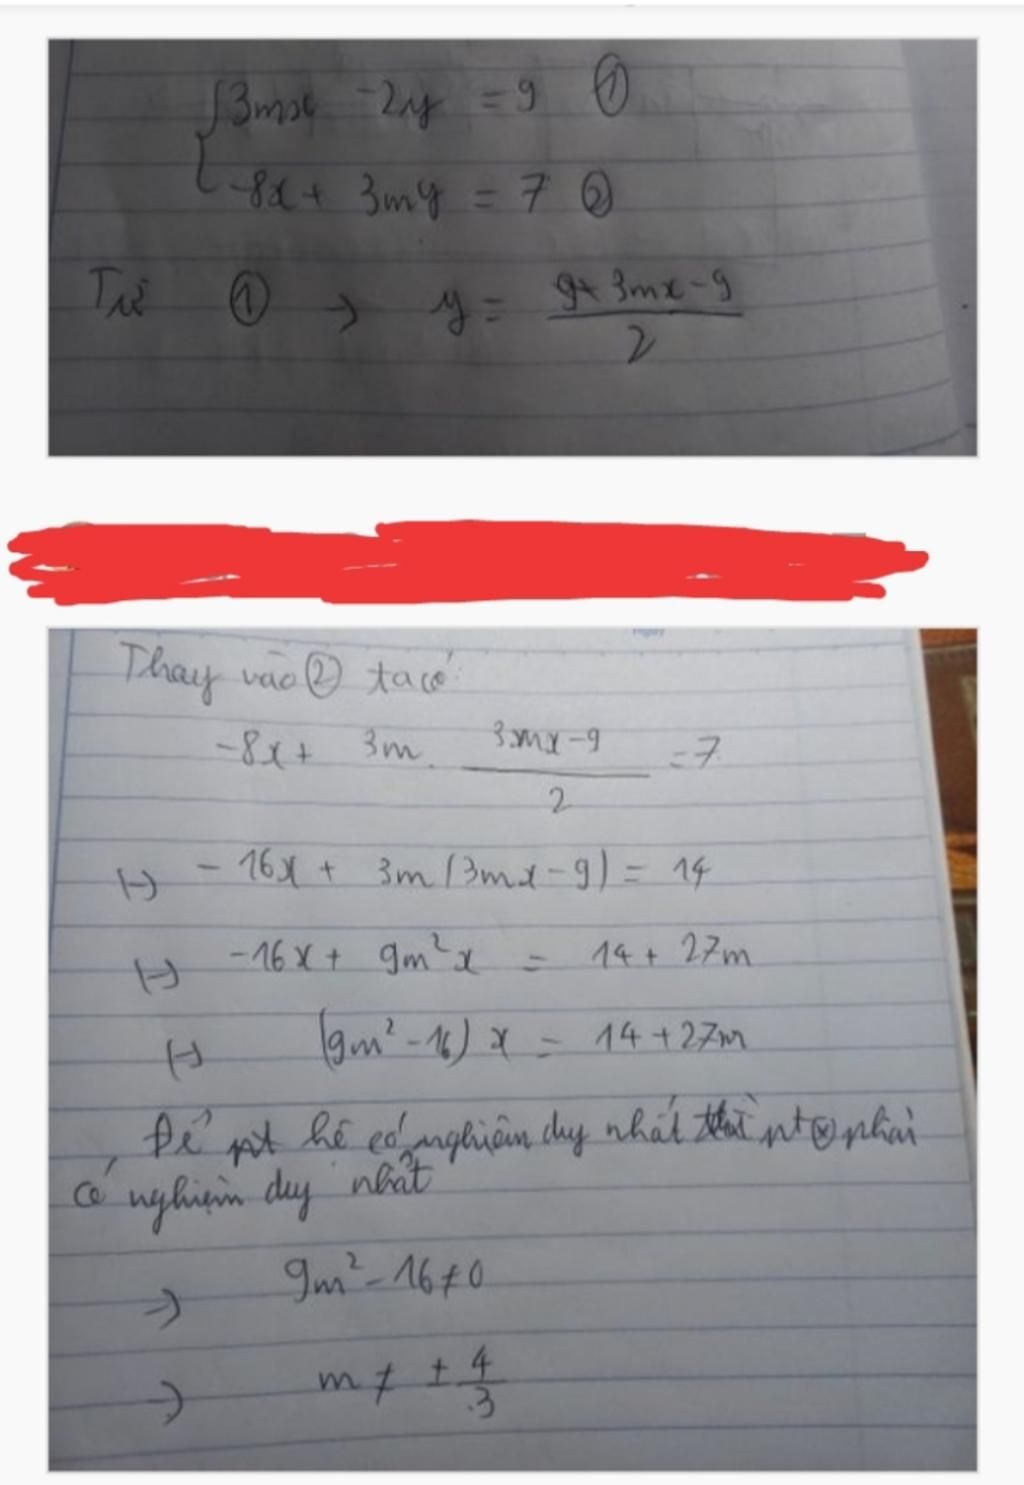 3mx -2y = 9 ①
-8x + 3my = 7 ②
Từ ① → y = 9+ 3mx - 9
2
Thay vào ② ta có:
-8x + 3m . 3mx - 9 = 7
2
(-) - 16x + 3m (3mx - 9) = 14
(-) -16x + 9m² x = 14 + 27m
(-) (9m² - 16) x = 14 + 27m
Để pt hê có nghiêm duy nhất thì pt ⊗ phải
có nghiệm duy nhất
=) 9m² - 16 ≠ 0
=) m ≠ ± 4
3